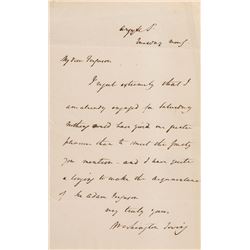 Argyle St
Tuesday morng
My dear Ferguson
I regret extremely that I
am already engaged for Saturday
nothing would have given me greater
pleasure than to meet the party
you mention - and I have quite
a longing to make the acquaintance
of Sir Adam Ferguson
very truly yours,
Washington Irving